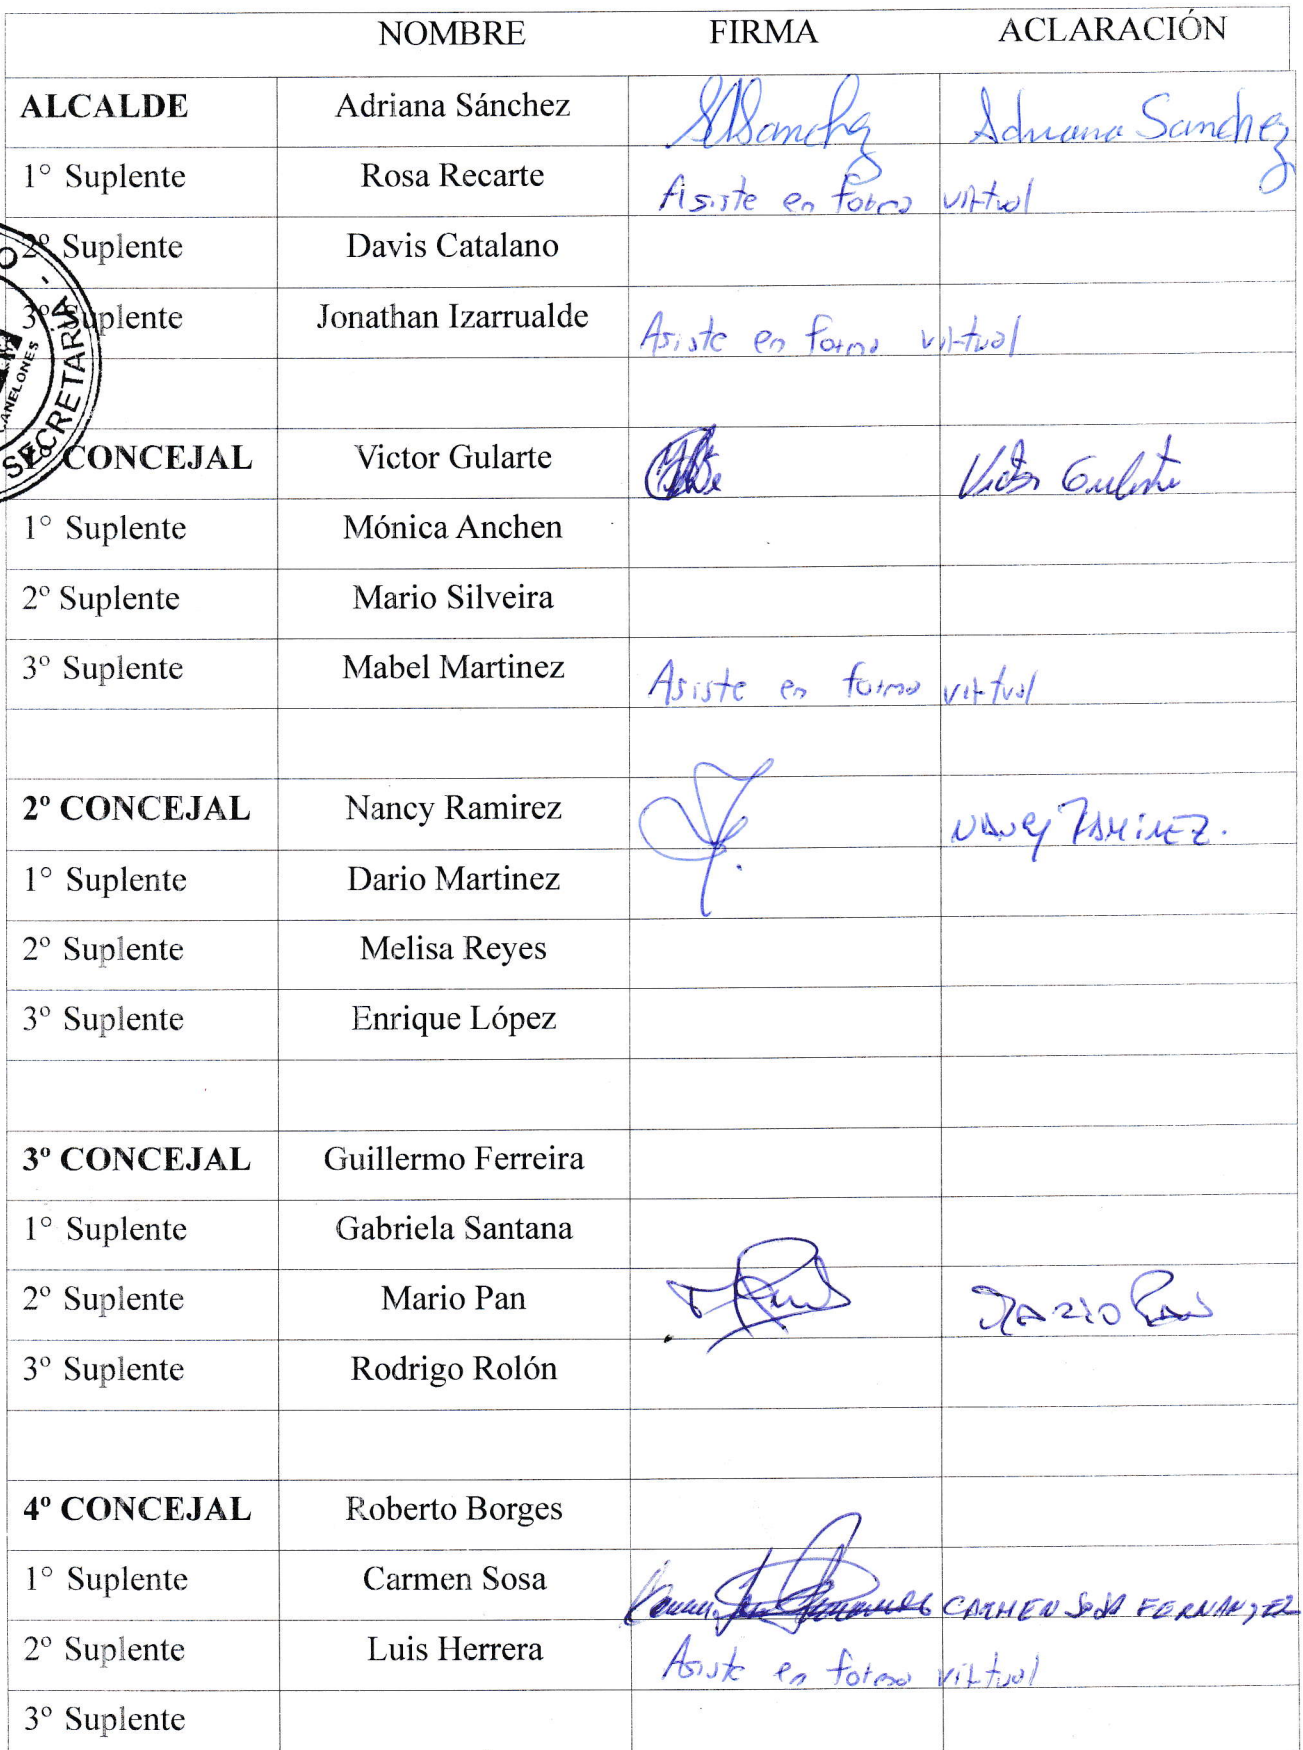 NOMBRE FIRMA ACLARACIÓN
ALCALDE Adriana Sánchez Adriana Sanchez
1° Suplente Rosa Recarte Asiste en forma virtual
2º Suplente Davis Catalano
3º Suplente Jonathan Izarrualde Asiste en forma virtual
CANELONES
SECRETARÍA
CONCEJAL Victor Gularte Victor Gularte
1° Suplente Mónica Anchen
2º Suplente Mario Silveira
3º Suplente Mabel Martinez Asiste en forma virtual
2º CONCEJAL Nancy Ramirez NANCY RAMIREZ.
1° Suplente Dario Martinez
2º Suplente Melisa Reyes
3º Suplente Enrique López
3º CONCEJAL Guillermo Ferreira
1° Suplente Gabriela Santana
2º Suplente Mario Pan MARIO Pan
3º Suplente Rodrigo Rolón
4º CONCEJAL Roberto Borges
1° Suplente Carmen Sosa CARMEN SOSA FERNANDEZ
2º Suplente Luis Herrera Asiste en forma virtual
3º Suplente